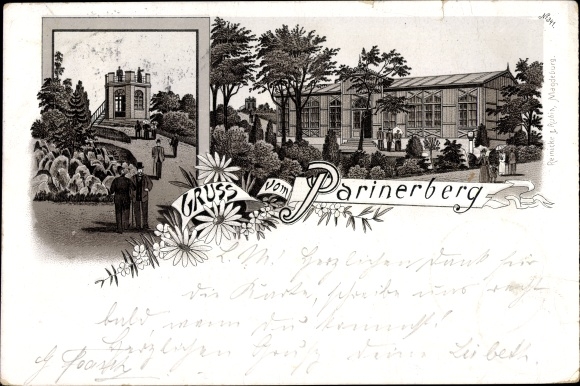 GRUSS vom Parinerberg
Reinicke & Rubin, Magdeburg.
L. M! Herzlichen Dank für
die Karte, schreibe uns recht
bald, wenn Du kommst!
Herzlichen Gruß Deine